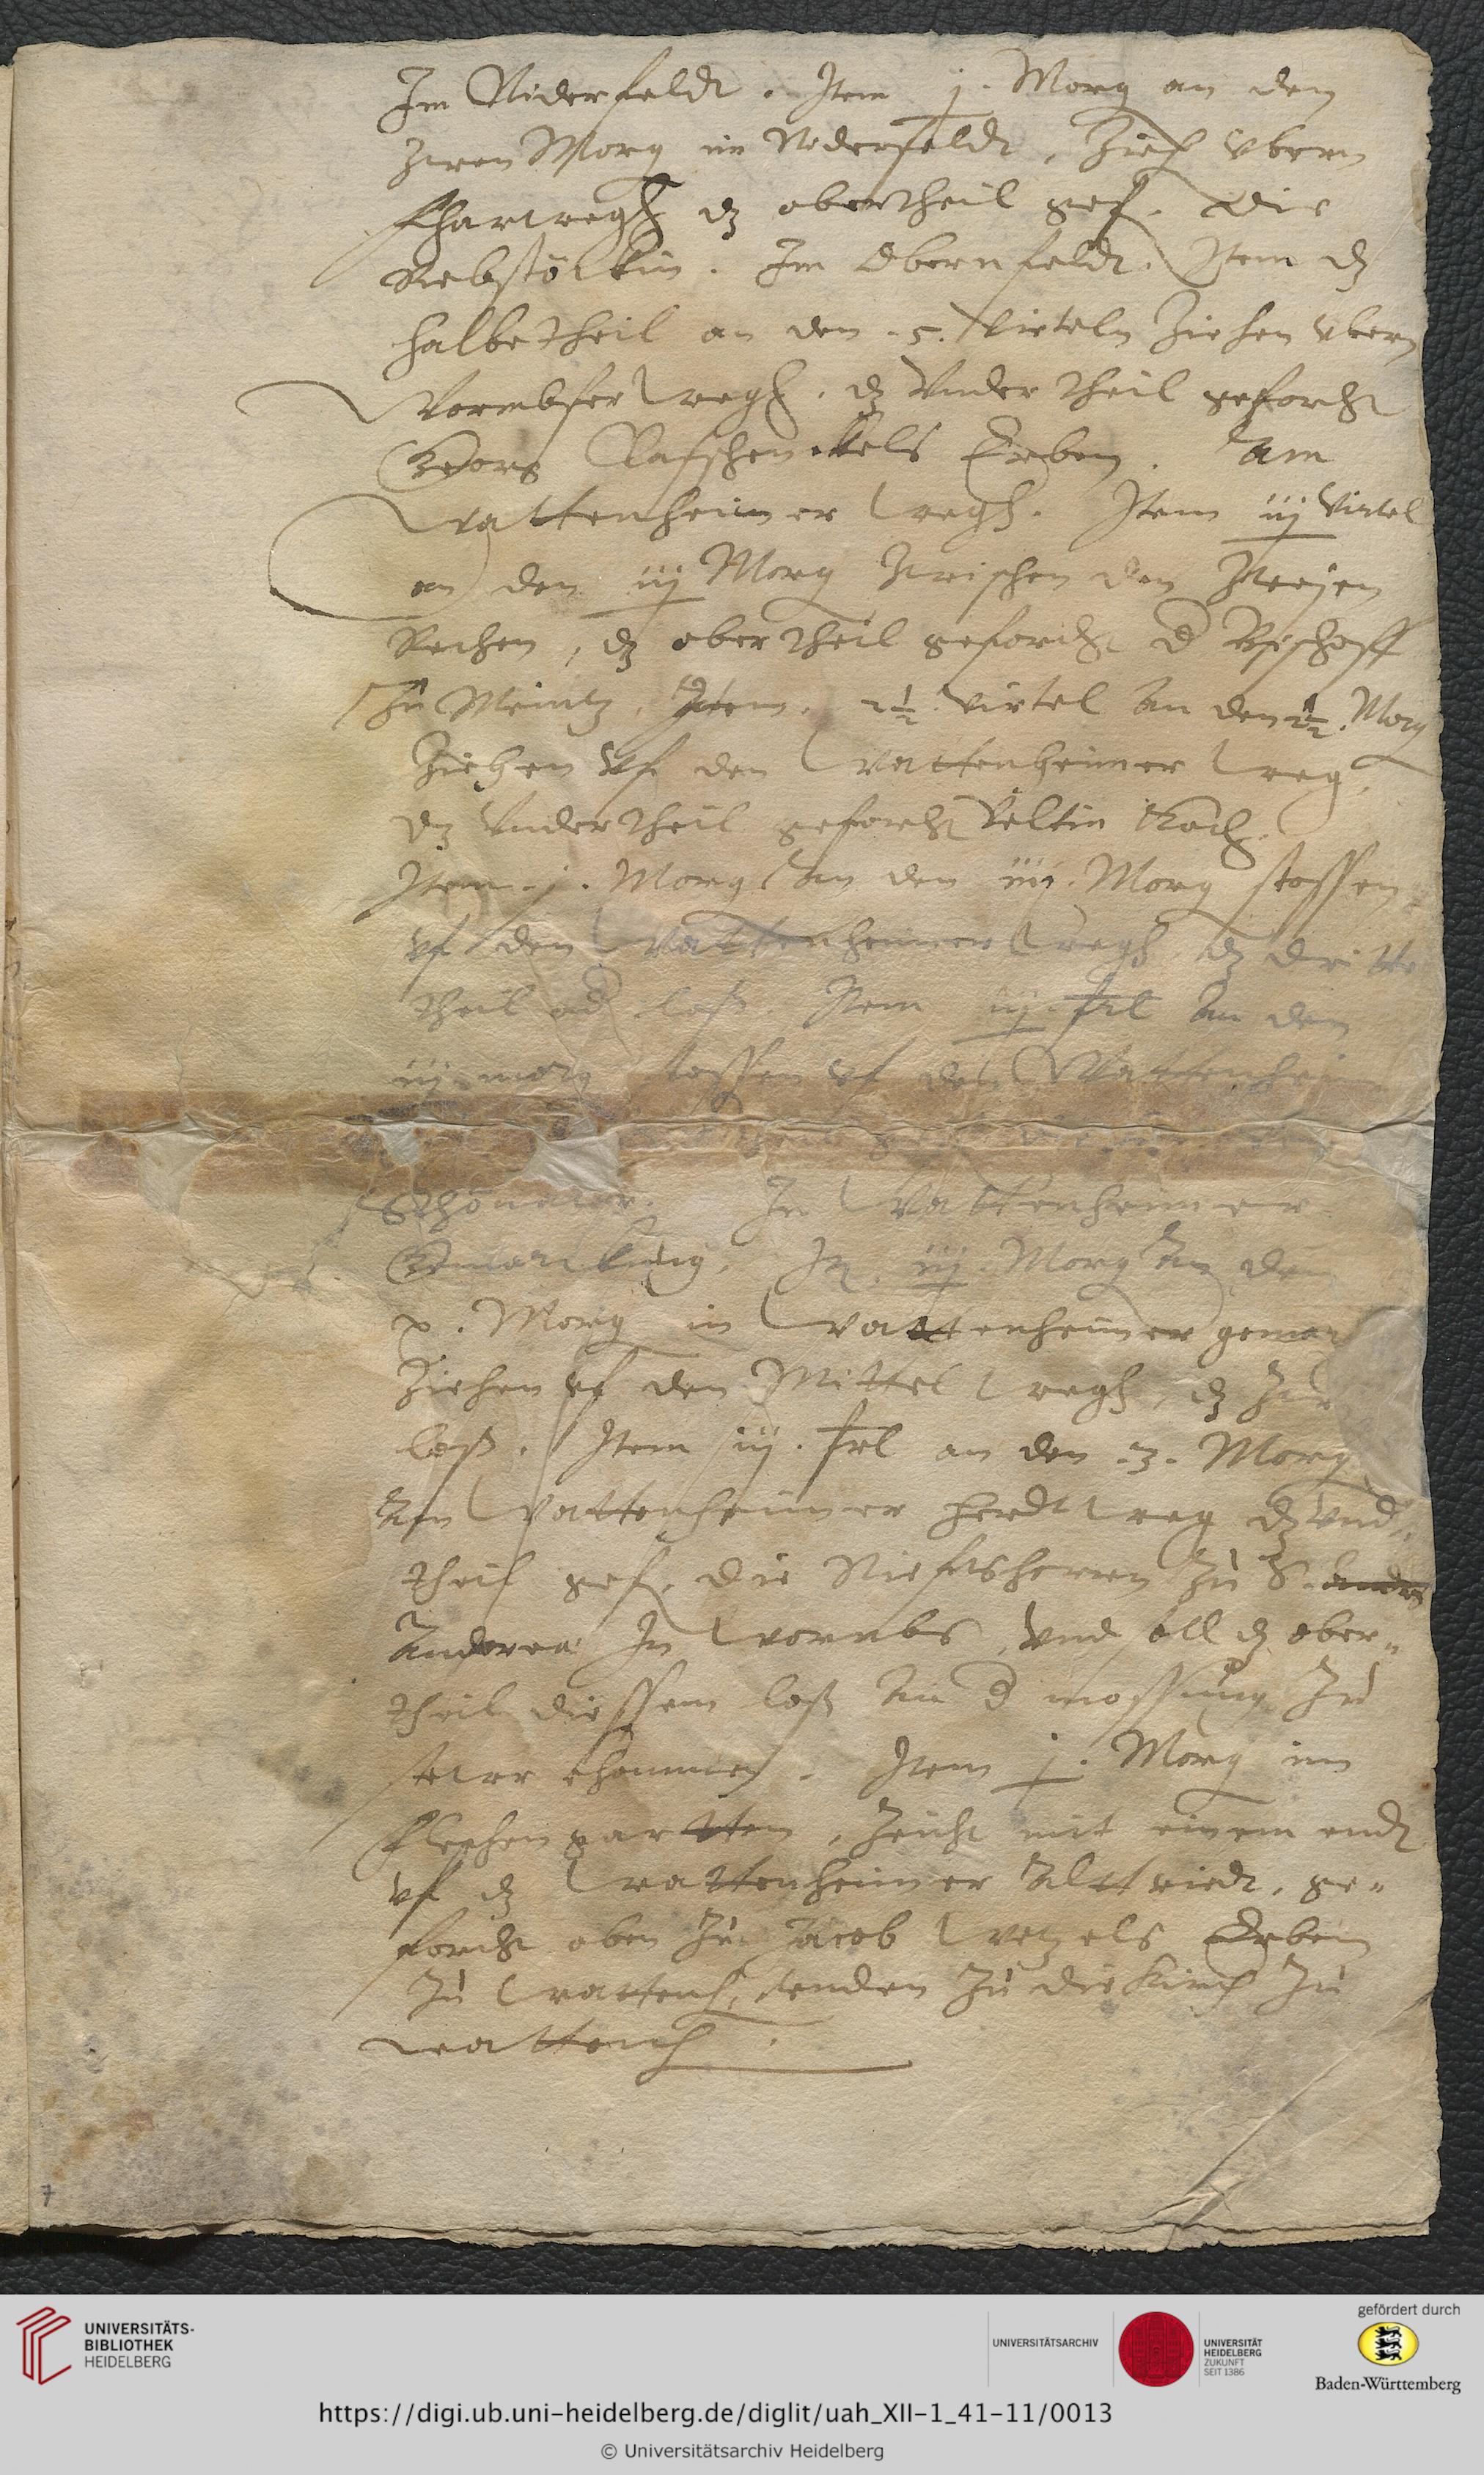 Im Niderfeldt. Item j. Morg an den
zwen Morg im Niderfeldt, Zieh vbern
fhartwegh dz obertheil gef. die
Rebstöckin. Im Obernfeldt. Item dz
halbe theil an den .5. Virteln Ziehen vbern
Wormbser wegh. dz vnder theil geforcht
Georg Erben. Am
Wattenheimer wegh. Item iij virtel
an den iij Morg Zwischen den Zweyen
Rechen, dz ober theil geforcht d Bischoff
Zu Meintz. Item. 2½ virtel an den 2½. Morg
Ziehen vf den Wattenheimer weg,
dz vndertheil geforcht Veltin Koch.
Item .j. Morg an den iiij. Morg stossen
vf den Wattenheimer wegh. dz dritte
theil ad loß. Item iij. frl an den
iij morg stossen vf den Wattenheimer
In Wattenheimer
Gemarkung. It. iij. Morg an den
x. Morg in Wattenheimer gemar
Ziehen vf den Mittel wegh, dz
loß. Item iij. frl an den .3. Morg
Am Wattenheimer herdt weg dz vnd
theil gef. die Stiftsherrn Zu S.
Anderea In Wormbs, vnd soll dz ober-
theil diessem loß an d mossung Zu
steur khommen. Item j. Morg im
garten, Zeicht mit einem endt
vf dz Wattenheimer Altt riedt, ge-
forcht oben Zu Jacob Wetzels Erben
Zu Wattenh, vnden Zu die Kirch Zu
Wattenh.
7
UNIVERSITÄTS-
BIBLIOTHEK
HEIDELBERG
UNIVERSITÄTSARCHIV
UNIVERSITÄT
HEIDELBERG
ZUKUNFT
SEIT 1386
gefördert durch
Baden-Württemberg
https://digi.ub.uni-heidelberg.de/diglit/uah_XII-1_41-11/0013
© Universitätsarchiv Heidelberg